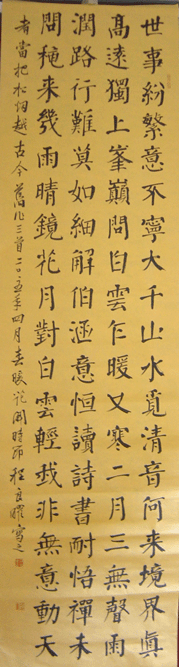 世事紛繁意不寧大千山水覓清音何來境界真
高遠獨上峯巔問白雲乍暖又寒二月三無聲雨
潤路行難莫如細解伯涵意恒讀詩書耐悟禪未
問穐來幾雨晴鏡花月對白雲輕我非無意動天
者當把松烟越古今舊作三首二〇一五年四月春暖花開時節程良曜書之